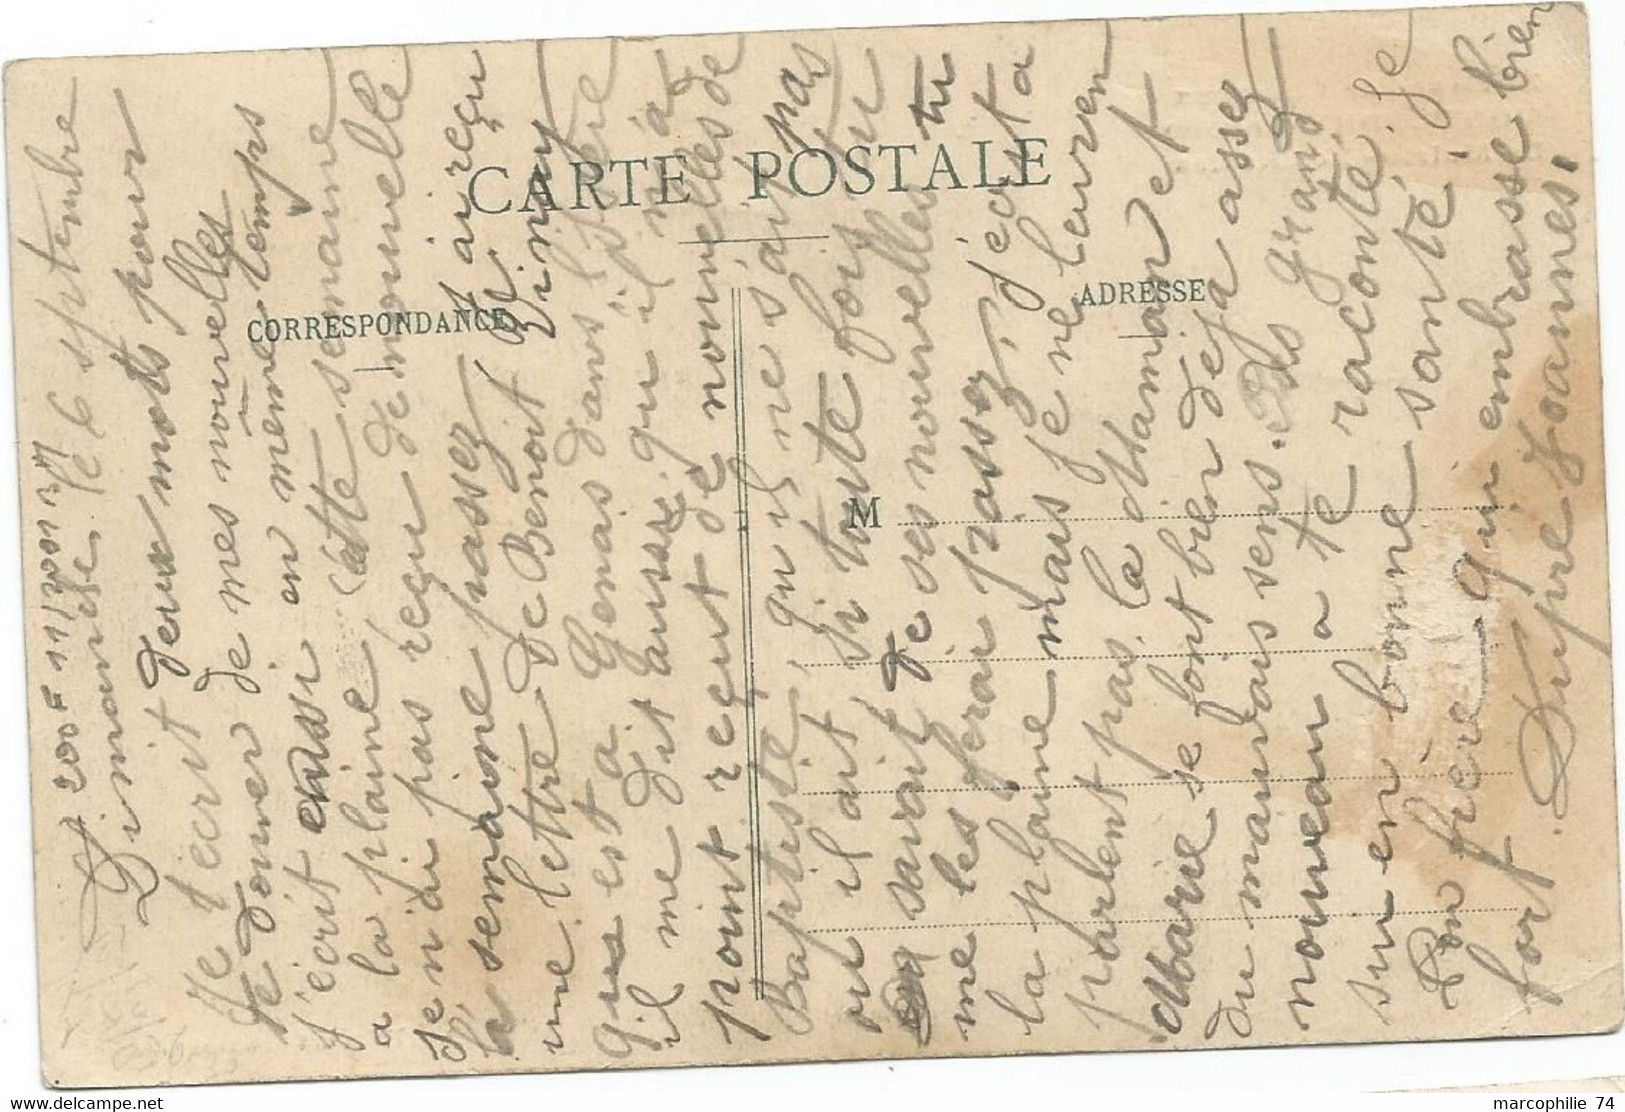 CARTE POSTALE
CORRESPONDANCE
ADRESSE
M
Dimanche le 6 septembre
Je t'écrit deux mots pour
te donner de mes nouvelles
j'écrit aussi en même temps
a la plaine, cette semaine
je n'ai pas reçu de nouvelle
la semaine passez j'ai reçu
une lettre de Benoit
que est a Genas dans l'Isère
il me dit aussi qu'il n'a
point reçut de nouvelles de
Baptiste, qu'il ne sait pas
ou il ait, si toute fois tu
savait de ses nouvelles tu
me les ferai passez, j'écrit a
la plaine mais je ne leur en
parlent pas, la Maman et
Marie se font bien déja assez
du mauvais sens. Pas grand
nouveau a te raconté. Je
suis en bonne santé. Je
Ton frère qui embrasse bien
fort. Dupré Joannes.
200F 11/2001 JM
marcophilie 74